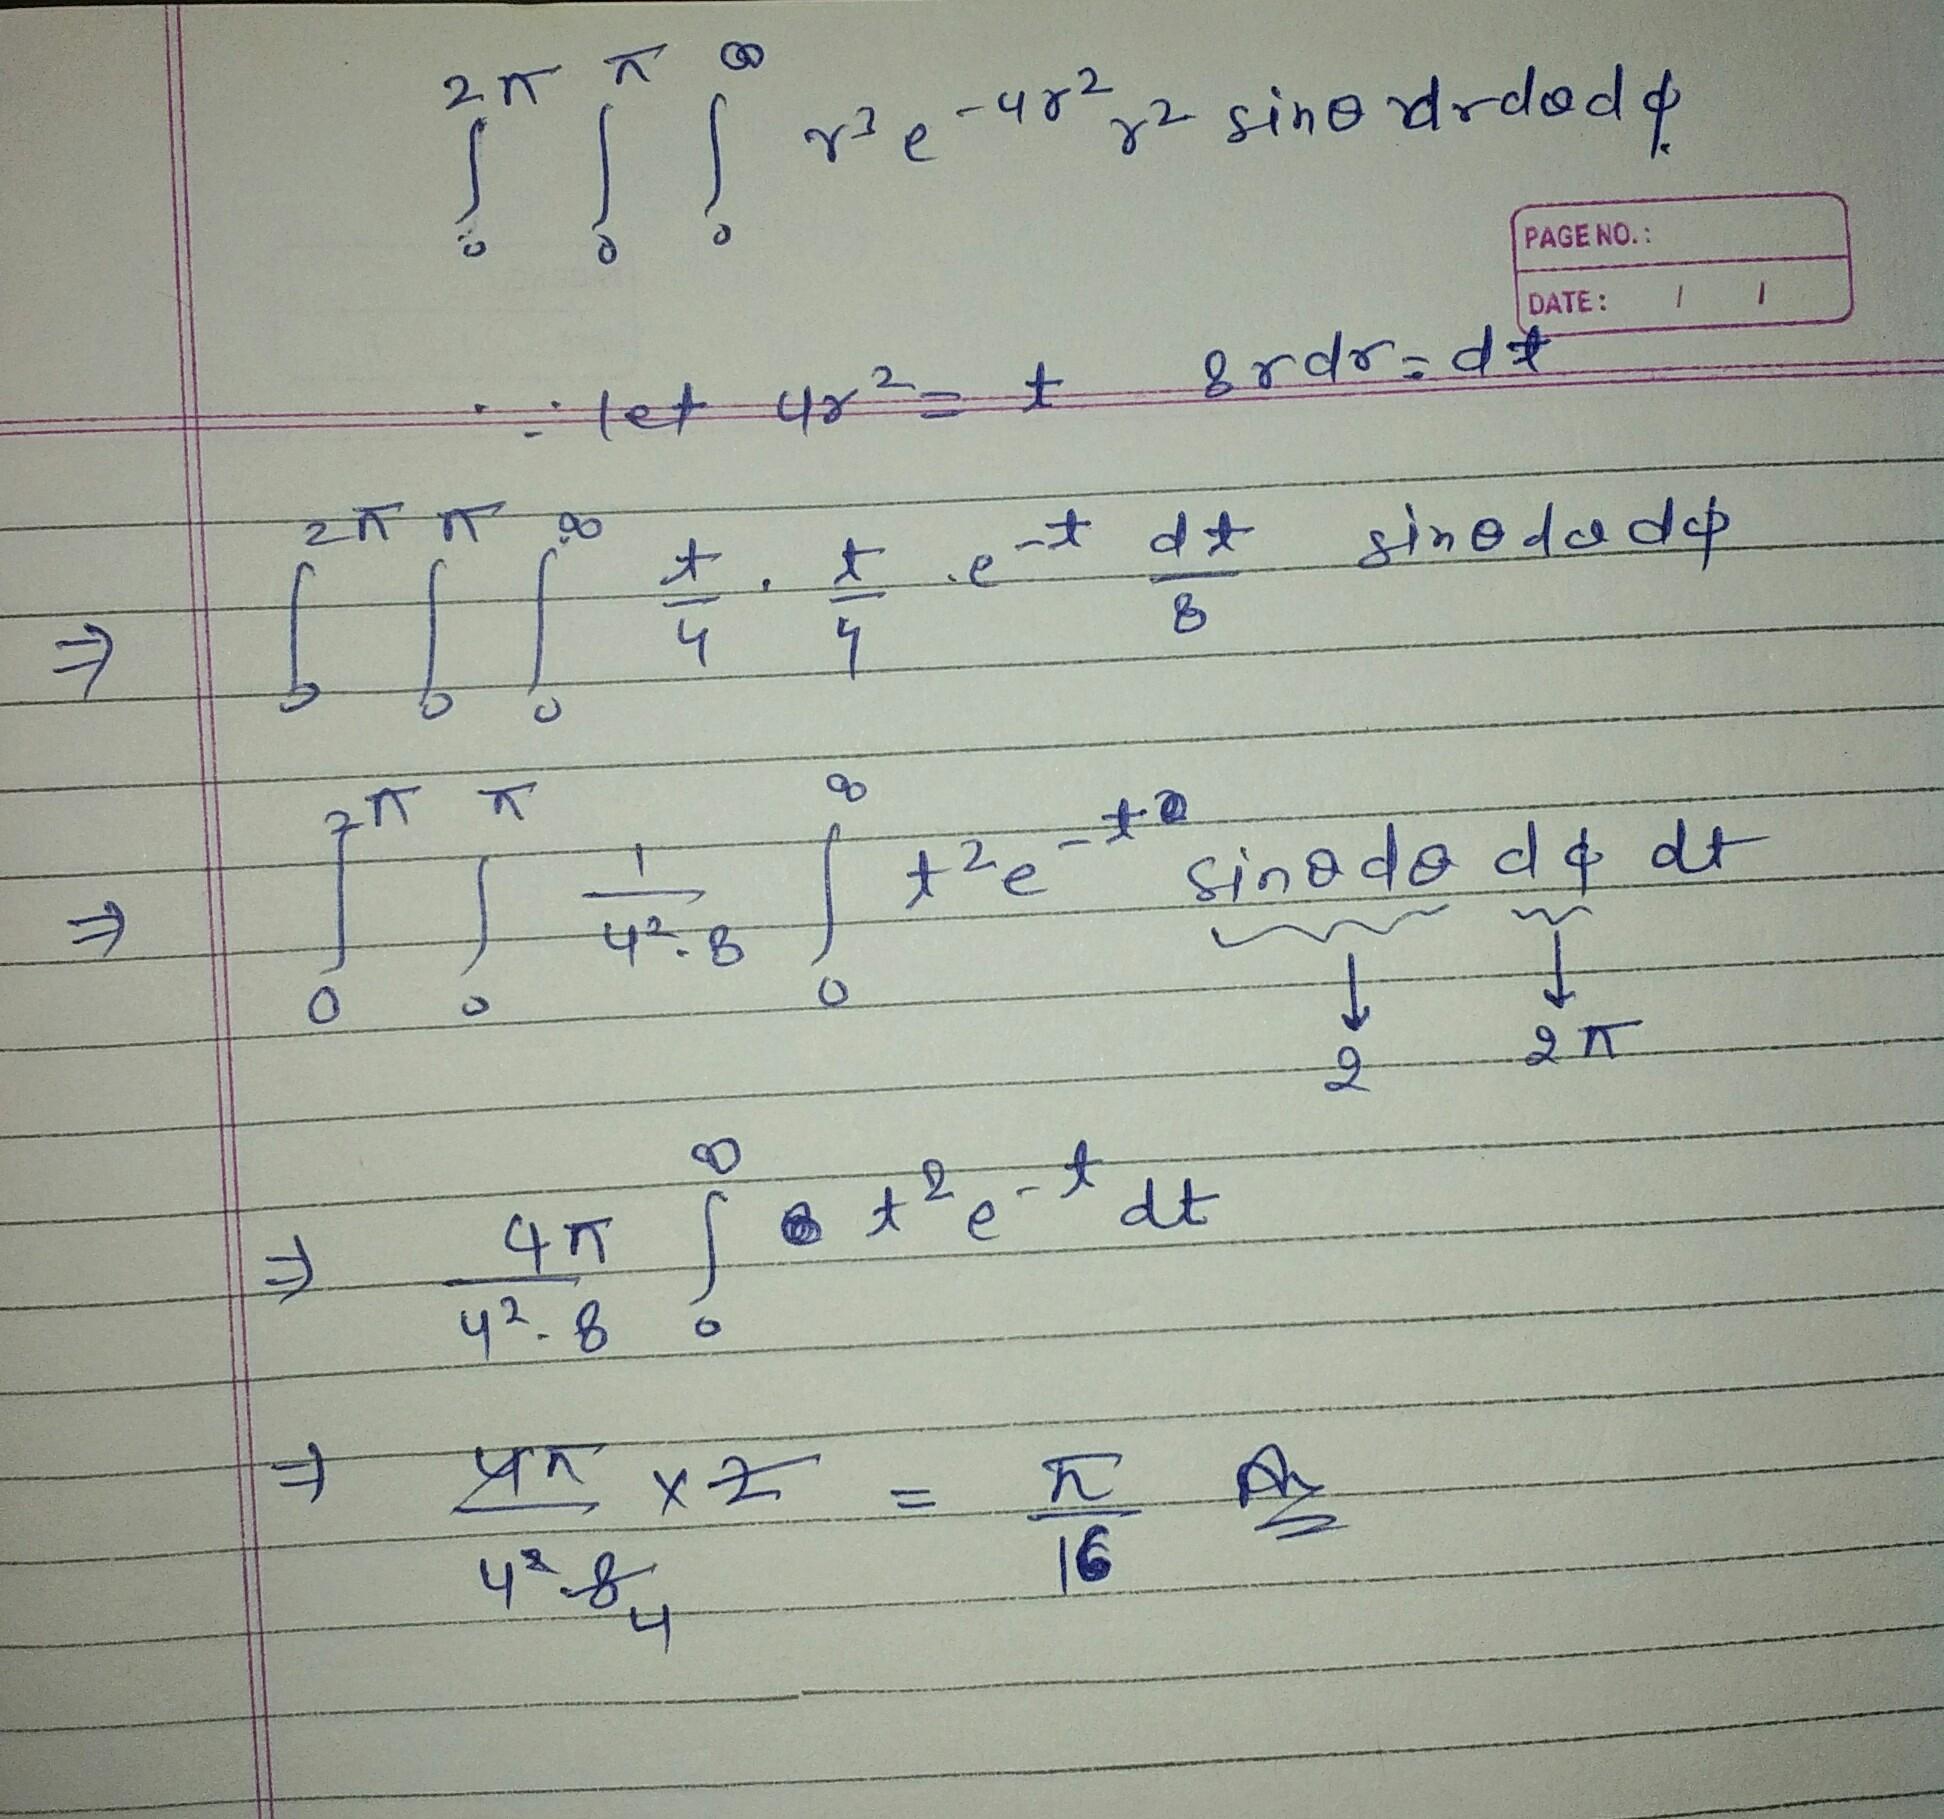 ∫₀^2π ∫₀^π ∫₀^∞ r³ e^-4r² r² sinθ dr dθ dφ
PAGE NO.:
DATE: / /
∴ let 4r² = t 8rdr = dt
⇒ ∫₀^2π ∫₀^π ∫₀^∞ t/4 · t/4 · e^-t dt/8 sinθ dθ dφ
⇒ ∫₀^2π ∫₀^π 1/(4²·8) ∫₀^∞ t² e^-t sinθ dθ dφ dt
↓ ↓
2 2π
⇒ 4π/(4²·8) ∫₀^∞ t² e^-t dt
⇒ 4π/(4²·8) × 2 = π/16 Ans
4